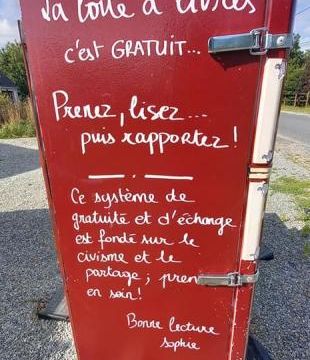 La boîte à livres
c'est GRATUIT...
Prenez, lisez...
puis rapportez!
Ce système de
gratuité et d'échange
est fondé sur le
civisme et le
partage; pren
en soin!
Bonne lecture
Sophie